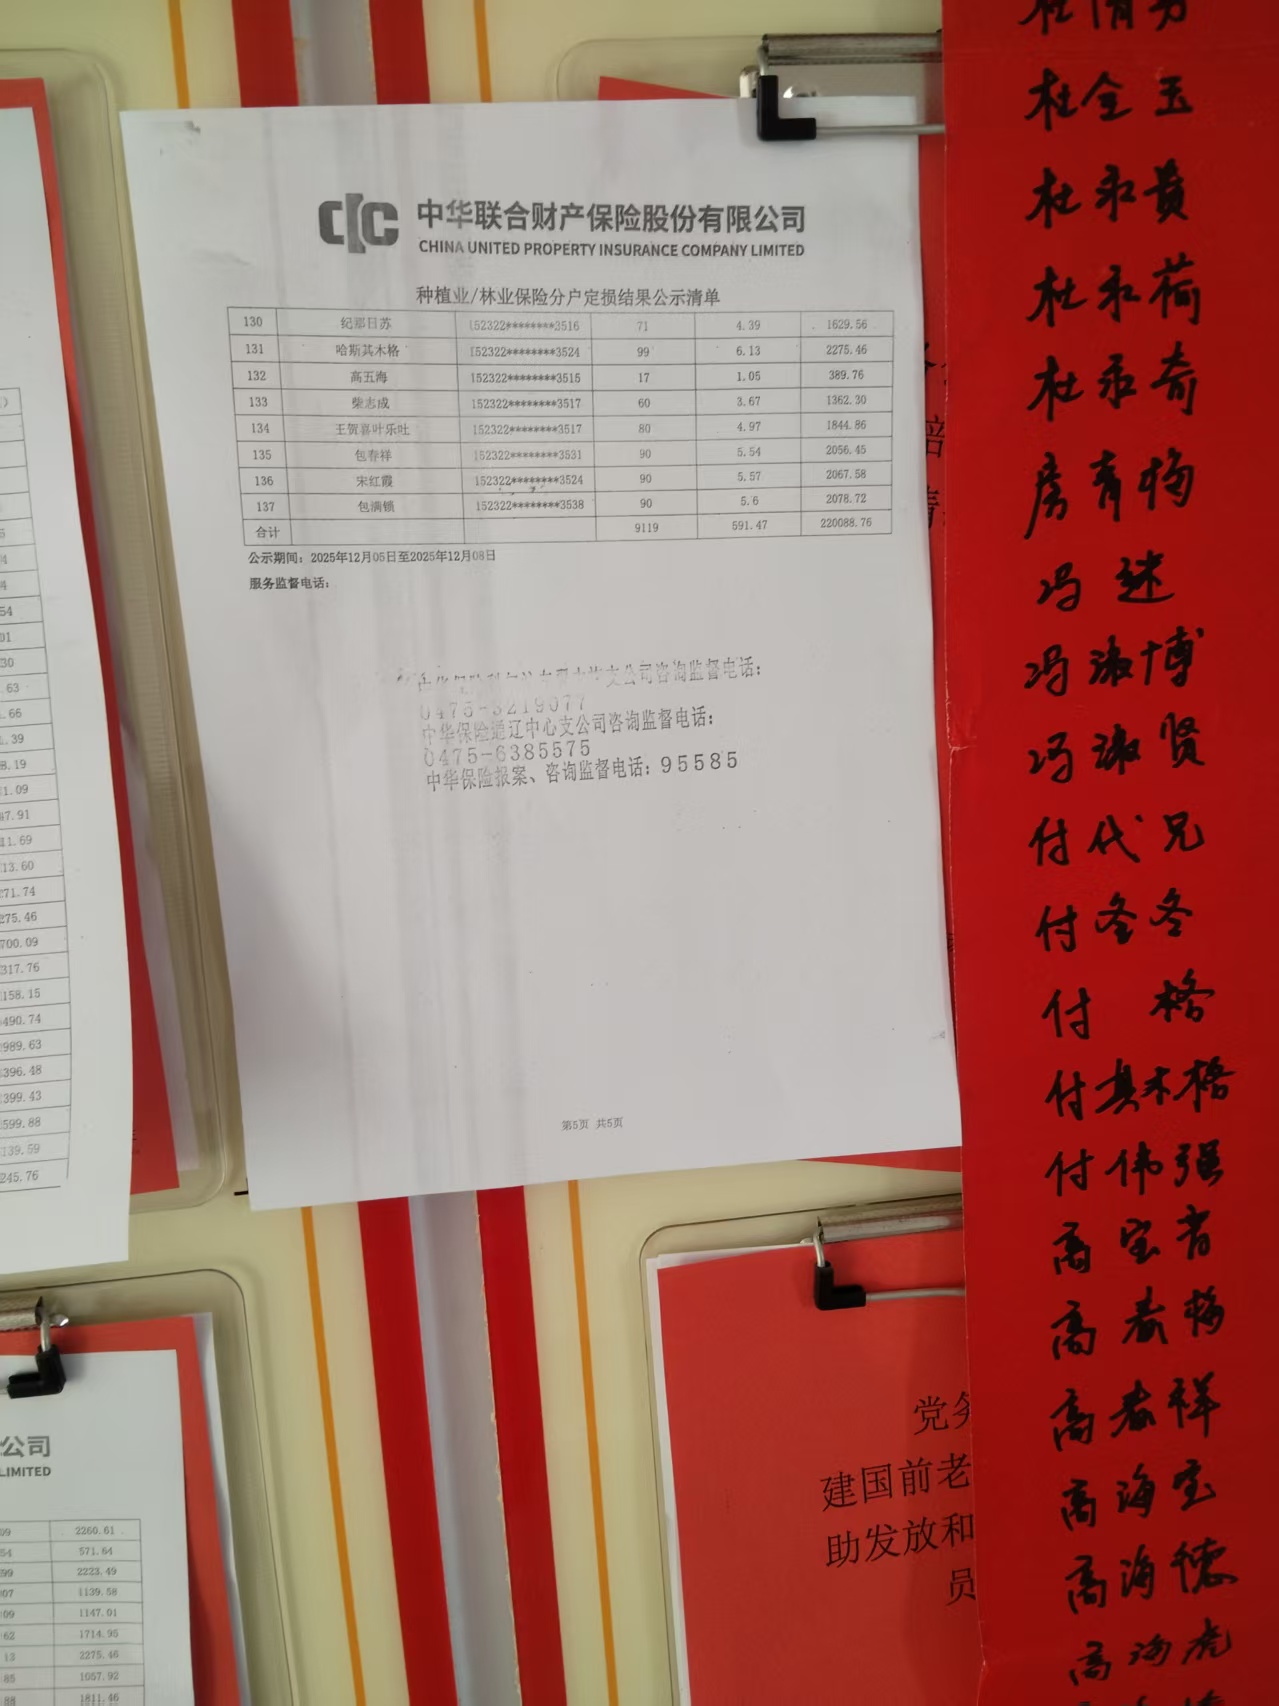 中华联合财产保险股份有限公司
CHINA UNITED PROPERTY INSURANCE COMPANY LIMITED
种植业/林业保险分户定损结果公示清单
130 纪那日苏 152322********3516 71 4.39 1629.56
131 哈斯其木格 152322********3524 99 6.13 2275.46
132 高五海 152322********3515 17 1.05 389.76
133 柴志成 152322********3517 60 3.67 1362.30
134 王贺喜叶乐吐 152322********3517 80 4.97 1844.86
135 包春祥 152322********3531 90 5.54 2056.45
136 宋红霞 152322********3524 90 5.57 2067.58
137 包满锁 152322********3538 90 5.6 2078.72
合计 9119 591.47 220088.76
公示期间：2025年12月05日至2025年12月08日
服务监督电话：
支公司咨询监督电话：
0475-3219077
中华保险通辽中心支公司咨询监督电话：
0475-6385575
中华保险报案、咨询监督电话：95585
第5页 共5页
杜全玉
杜永贵
杜永荷
杜永奇
房青梅
冯 述
冯淑博
冯淑贤
付代兄
付冬冬
付 格
付其木格
付伟强
高宝音
高春梅
高春祥
高海宝
高海德
高海虎
党务
建国前老
助发放和
员
54
01
30
.63
.66
.39
8.19
1.09
47.91
11.69
13.60
271.74
275.46
700.09
317.76
158.15
490.74
989.63
396.48
399.43
599.88
139.59
245.76
公司
LIMITED
09 2260.61
54 571.64
99 2223.49
07 1139.58
09 1147.01
62 1714.95
13 2275.46
85 1057.92
88 1811.46